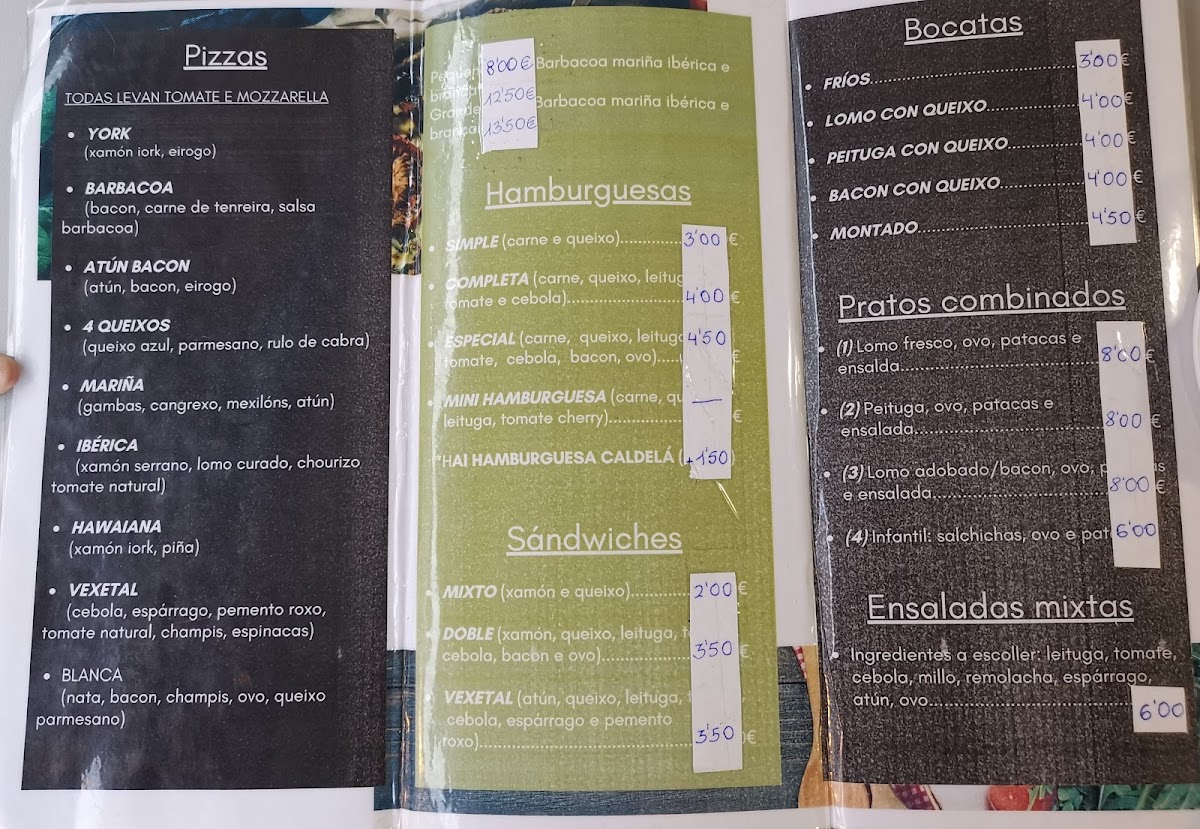 Pizzas
TODAS LEVAN TOMATE E MOZZARELLA
• YORK
(xamón iork, eirogo)
• BARBACOA
(bacon, carne de tenreira, salsa
barbacoa)
• ATÚN BACON
(atún, bacon, eirogo)
• 4 QUEIXOS
(queixo azul, parmesano, rulo de cabra)
• MARIÑA
(gambas, cangrexo, mexilóns, atún)
• IBÉRICA
(xamón serrano, lomo curado, chourizo
tomate natural)
• HAWAIANA
(xamón iork, piña)
• VEXETAL
(cebola, espárrago, pemento roxo,
tomate natural, champis, espinacas)
• BLANCA
(nata, bacon, champis, ovo, queixo
parmesano)
8'00€ Barbacoa mariña ibérica e
12'50€
Barbacoa mariña ibérica e
13'50€
Hamburguesas
• SIMPLE (carne e queixo)............... 3'00 €
• COMPLETA (carne, queixo, leituga
tomate e cebola)........................ 4'00 €
• ESPECIAL (carne, queixo, leituga 4'50
tomate, cebola, bacon, ovo)..... €
• MINI HAMBURGUESA (carne, —
leituga, tomate cherry)................ €
*HAI HAMBURGUESA CALDELÁ (+1'50)
Sándwiches
• MIXTO (xamón e queixo)............. 2'00 €
• DOBLE (xamón, queixo, leituga,
cebola, bacon e ovo).................. 3'50 €
• VEXETAL (atún, queixo, leituga,
cebola, espárrago e pemento
roxo)........................................ 3'50 €
Bocatas
• FRÍOS........................................ 3'00 €
• LOMO CON QUEIXO................. 4'00 €
• PEITUGA CON QUEIXO............. 4'00 €
• BACON CON QUEIXO............... 4'00 €
• MONTADO................................ 4'50 €
Pratos combinados
• (1) Lomo fresco, ovo, patacas e
ensalda..................................... 8'00 €
• (2) Peituga, ovo, patacas e
ensalada................................... 8'00 €
• (3) Lomo adobado/bacon, ovo,
e ensalada................................ 8'00 €
• (4) Infantil: salchichas, ovo e 6'00
Ensaladas mixtas
• Ingredientes a escoller: leituga, tomate,
cebola, millo, remolacha, espárrago,
atún, ovo................................... 6'00